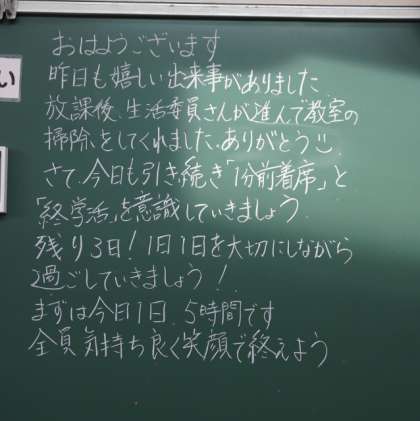 おはようございます
昨日も嬉しい出来事がありました
放課後、生活委員さんが進んで教室の
掃除をしてくれました。ありがとう
さて、今日も引き続き「1分前着席」と
「終学活」を意識していきましょう
残り3日！1日1日を大切にしながら
過ごしていきましょう！
まずは今日1日、5時間です
全員気持ち良く笑顔で終えよう
い